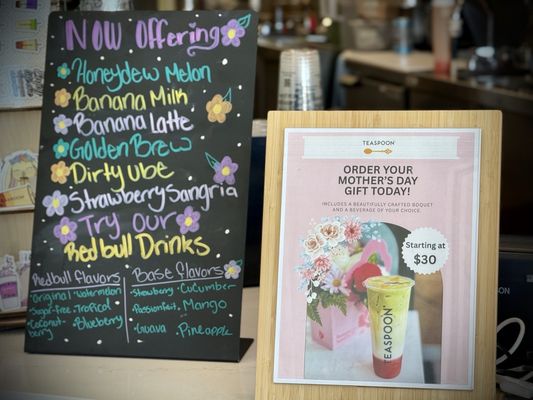 Now Offering
Honeydew Melon
Banana Milk
Banana Latte
Golden Brew
Dirty Ube
Strawberry Sangria
Try Our
Red bull Drinks
Redbull flavors
Original Watermelon
Sugar-free Tropical
Coconut-berry Blueberry
Base flavors
Strawberry Cucumber
Passionfruit Mango
Guava Pineapple
TEASPOON
ORDER YOUR
MOTHER'S DAY
GIFT TODAY!
INCLUDES A BEAUTIFULLY CRAFTED BOQUET
AND A BEVERAGE OF YOUR CHOICE.
Starting at
$30
TEASPOON